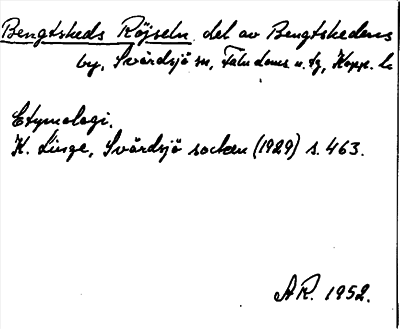 Bengtsheds Röjseln, del av Bengtshedens
by, Svärdsjö sn, Falu doms. u. tg, Kopp. l.
Etymologi.
K. Linge, Svärdsjö socken (1929) s. 463.
AR. 1952.